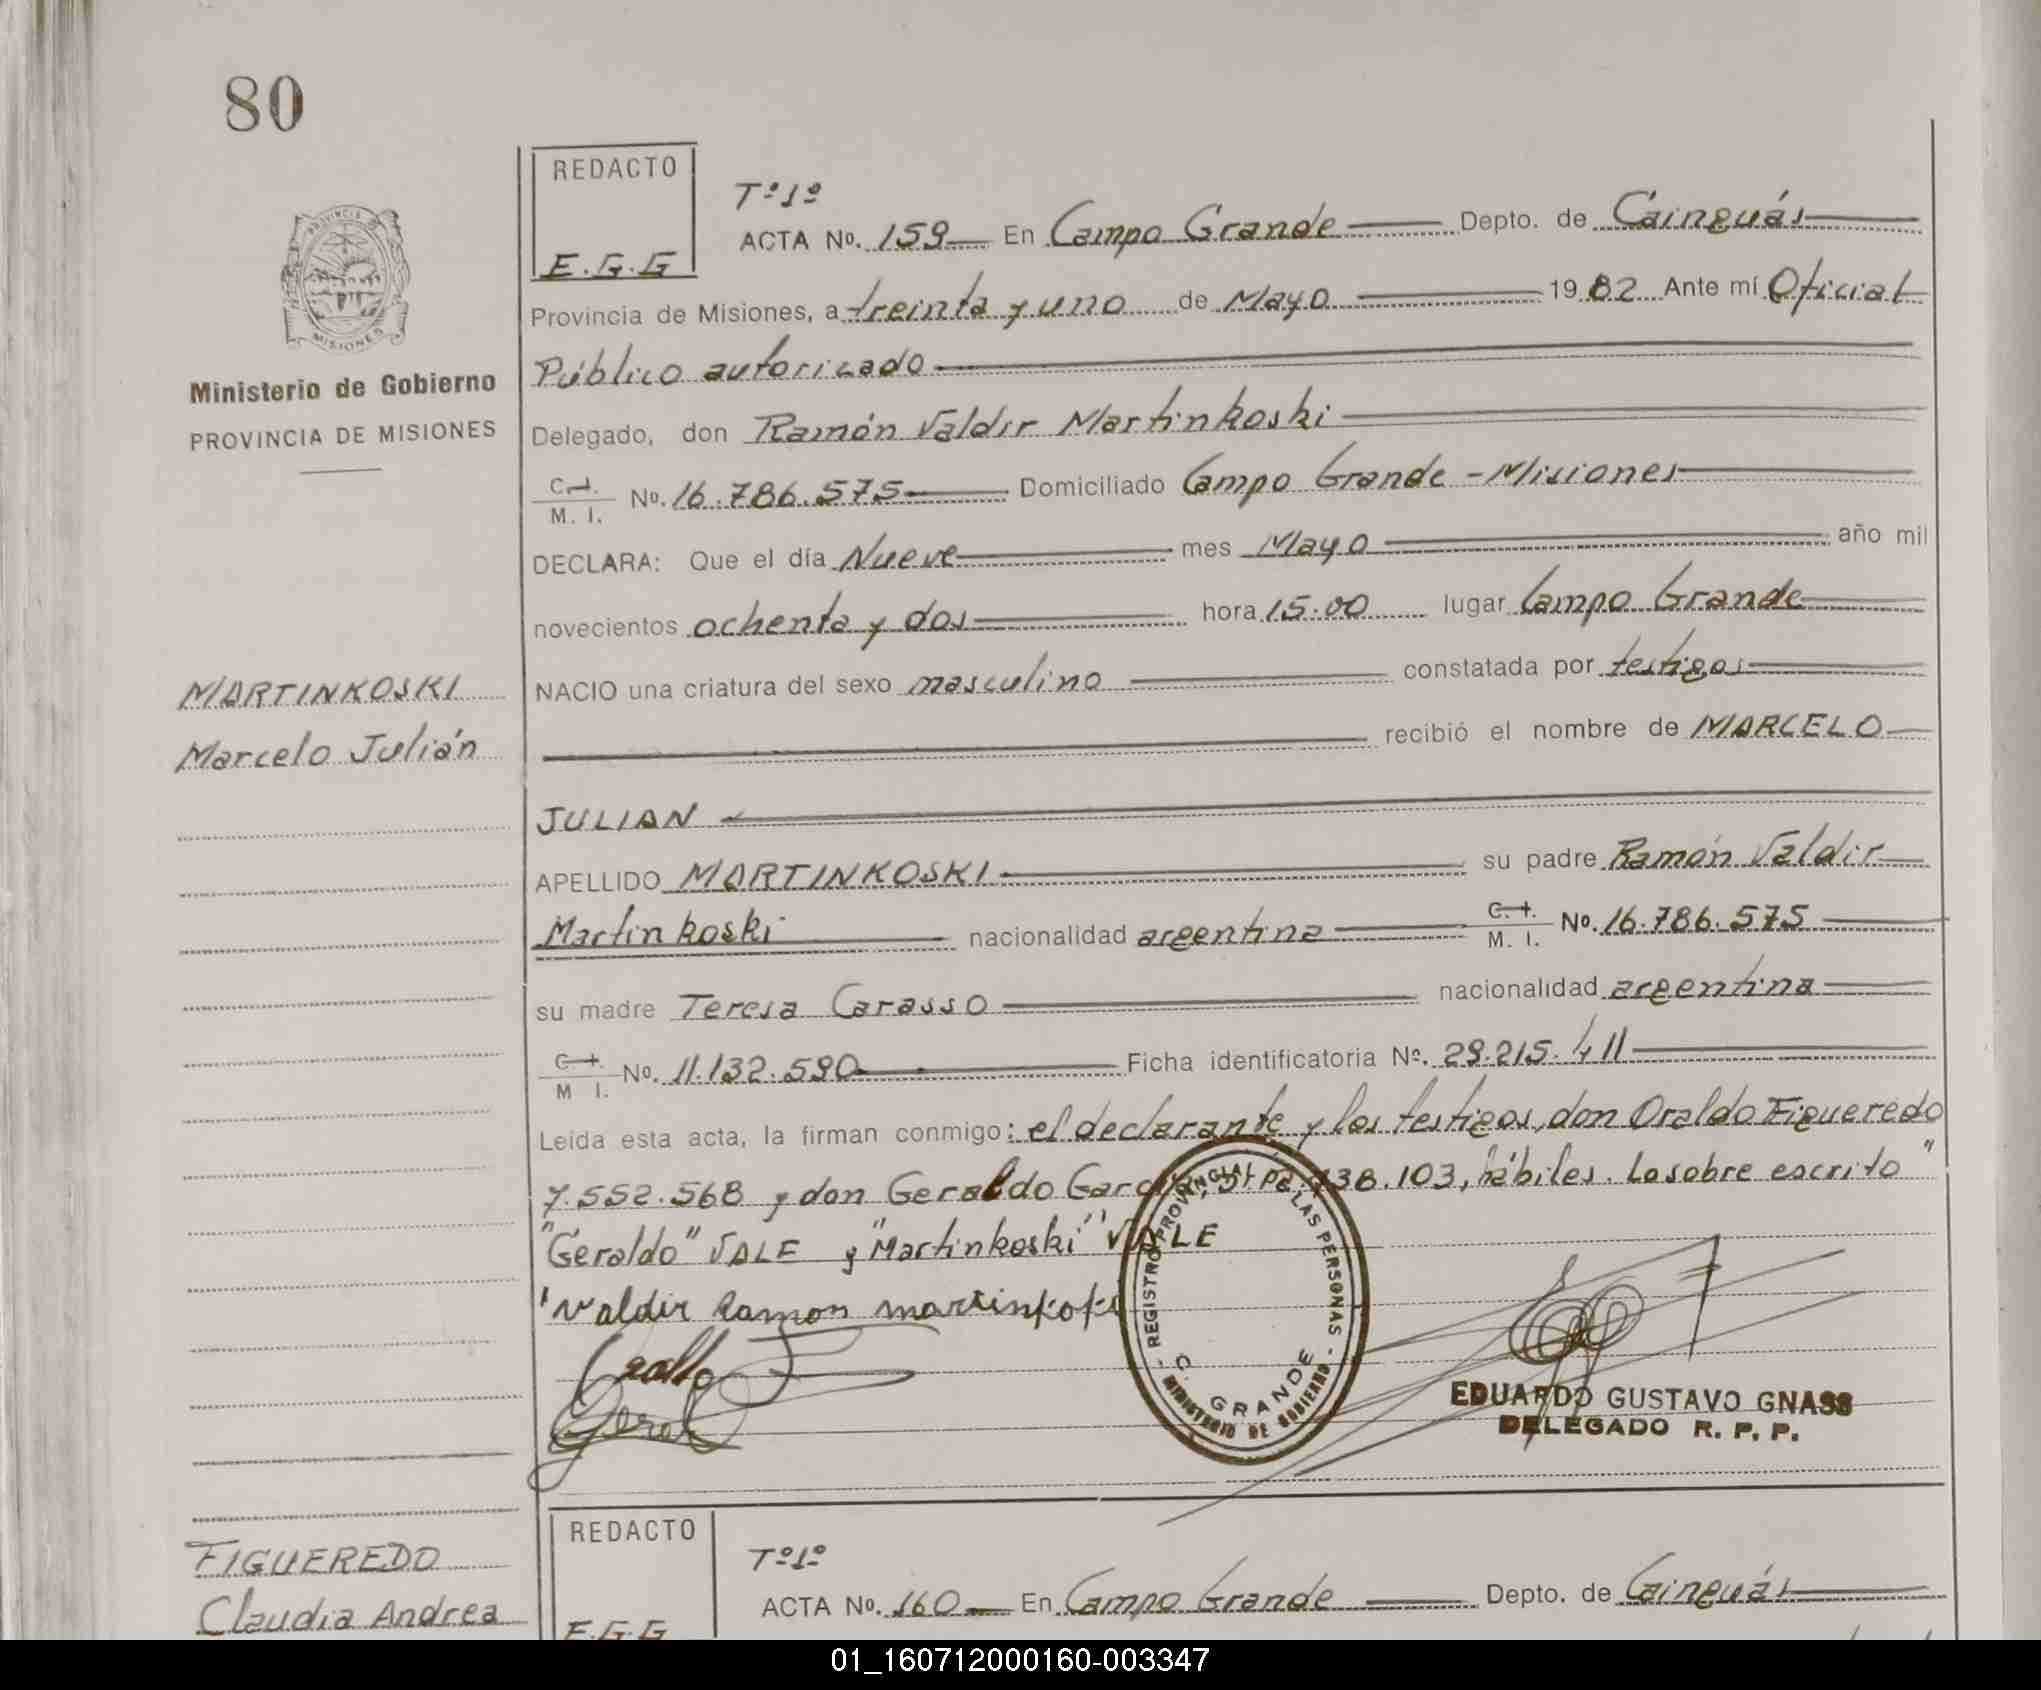 80
REDACTO
E.G.G
Tº1º
ACTA No. 159 En Campo Grande Depto. de Cainguás
PROVINCIA
MISIONES
Provincia de Misiones, a treinta y uno de Mayo 1982 Ante mí Oficial
Ministerio de Gobierno
PROVINCIA DE MISIONES
Público autorizado
Delegado, don Ramón Valdir Martinkoski
C.I.
M. I. No. 16.786.575 Domiciliado Campo Grande - Misiones
DECLARA: Que el día Nueve mes Mayo año mil
novecientos ochenta y dos hora 15.00 lugar Campo Grande
MARTINKOSKI
Marcelo Julián
NACIO una criatura del sexo masculino constatada por testigos
recibió el nombre de MARCELO
JULIAN
APELLIDO MARTINKOSKI su padre Ramón Valdir
Martinkoski nacionalidad argentina C.I. M. I. No. 16.786.575
su madre Teresa Carasso nacionalidad argentina
C.I.
M I. No. 11.132.590 Ficha identificatoria Nº. 29.215.411
Leída esta acta, la firman conmigo: el declarante y los testigos, don Oraldo Figueredo
7.552.568 y don Geraldo 138.103, hábiles. Lo sobre escrito "
"Geraldo" VALE y "Martinkoski" VALE
Valdir Ramon martinkoki
REGISTRO PROVINCIAL DE LAS PERSONAS
C. GRANDE
MINISTERIO DE GOBIERNO
EDUARDO GUSTAVO GNASS
DELEGADO R. P. P.
FIGUEREDO
Claudia Andrea
REDACTO
E.G.G
Tº1º
ACTA No. 160 En Campo Grande Depto. de Cainguás
01_160712000160-003347